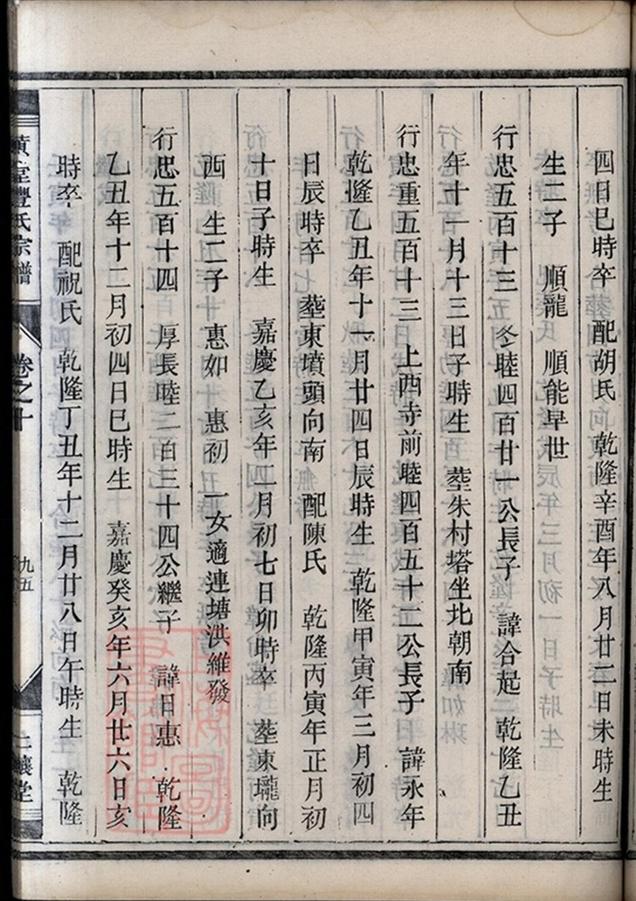 四日巳時卒　配胡氏　乾隆辛酉年八月廿二日未時生
生二子　順龍　順能早世
行忠五百十三　冬睦四百廿一公長子　諱合起　乾隆乙丑
年十一月十三日子時生　塟朱村塔坐北朝南
行忠重五百十三　上西寺前睦四百五十二公長子　諱永年
乾隆乙丑年十一月廿四日辰時生　乾隆甲寅年三月初四
日辰時卒　塟東墳頭向南　配陳氏　乾隆丙寅年正月初
十日子時生　嘉慶乙亥年二月初七日卯時卒　塟東瓏向
西　生二子　惠如　惠初　一女適連塘洪維發
行忠五百十四　厚長睦二百三十四公繼子　諱日惠　乾隆
乙丑年十二月初四日巳時生　嘉慶癸亥年六月廿六日亥
時卒　配祝氏　乾隆丁丑年十二月廿八日午時生　乾隆
豐氏宗譜
卷之十
九五